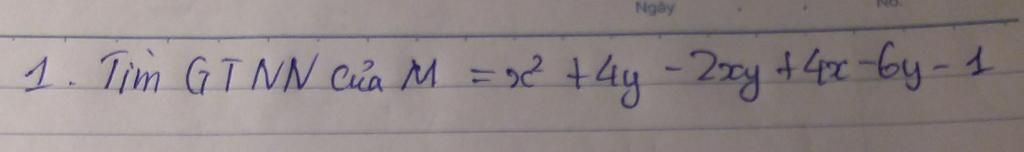 Ngày No.
1. Tìm GTNN của M = x² + 4y - 2xy + 4x - 6y - 1